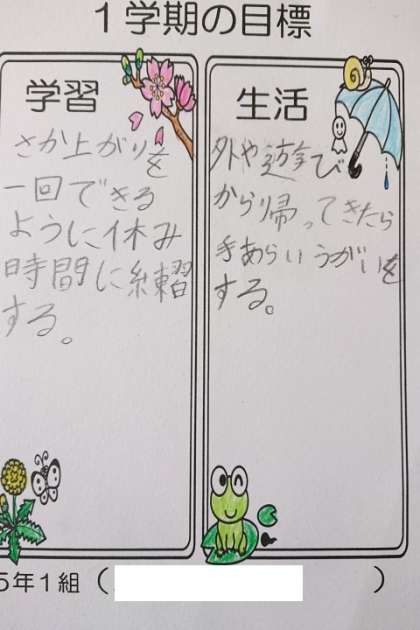 1学期の目標
学習
さか上がりを
一回できる
ように休み
時間に練習
する。
生活
外や遊び
から帰ってきたら
手あらいうがいを
する。
5年1組( )